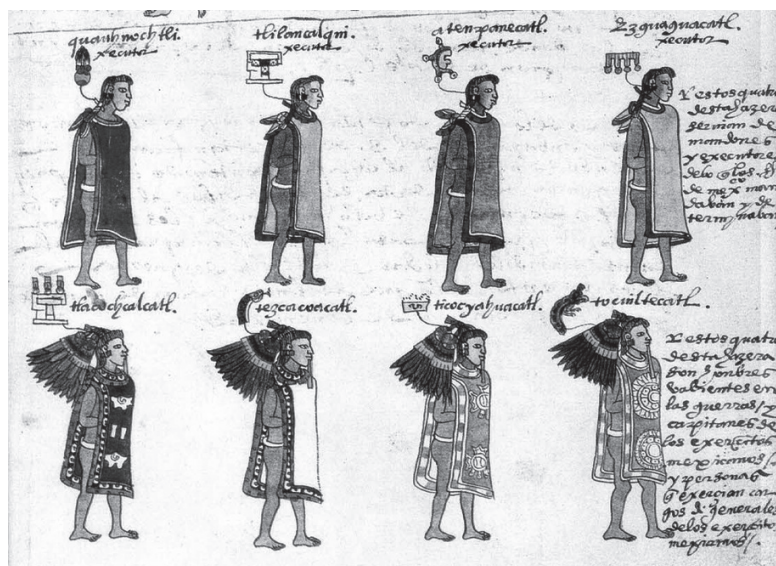 quauhnochtli. tlilancalqui. atenpanecatl. Ezguaguacatl.
xecutor xecutor xecutor xecutor
Y estos quatro
desta hazera
servian de
mandones
y executores
de mex
davan y de
terminavan
tlacochcalcatl. tezcacoacatl. ticocyahuacatl. tocuiltecatl.
Y estos quatro
desta hazera
son honbres
valientes en
las guerras / y
capitanes de
los exercitos
mexicanos /
y personas
q exercian car
gos de generales
delos exercitos
mexicanos /.